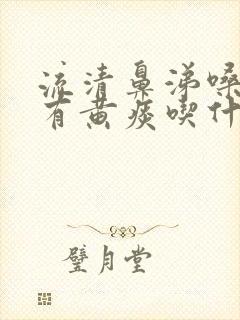 流清鼻涕嗓
有黄痰喫什
璧月堂